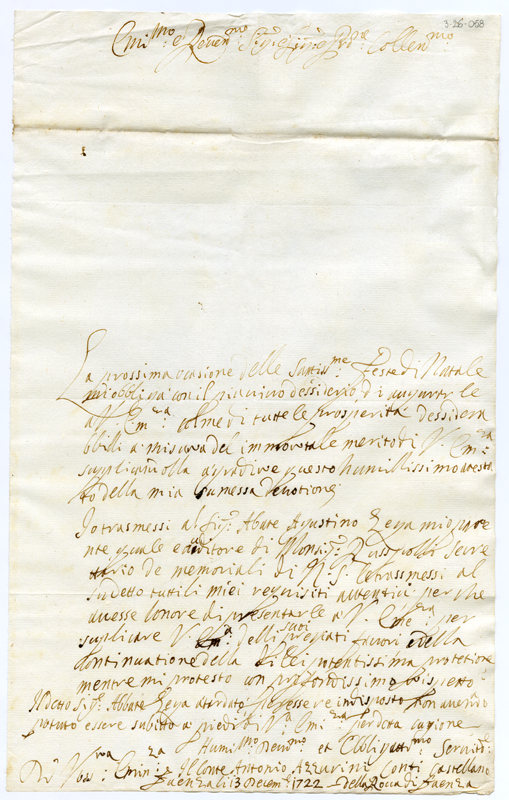 3-26-068
Emi:mo e Reuen:mo Sig:e Sig:e Prõe Collen:mo
La prossima ocasione delle Santiss:me Feste di Natale
mi obbliga con il più viuo dessiderio, di augurar le
a V. Em:za colme di tutte le prosperita dessidera
bbili a misura del immortale merito di V. Em:za
suplicandolla agradire questo humillissimo atesta
to della mia sumessa deuotione;
Io trasmessi al Sig:r Abate Agustino Zeya mio pare
nte quale e auditore di Monsig:r Passionei Secre
tario de memoriali di N. S. le trasmessi al
sudetto tutti li miei requisiti autentici per che
auesse lonore di presentarle a V. Em:za per
suplicare V. Em:a delli suoi pregiati fauori e della
continuatione della di lei potentissima protetione
mentre mi protesto con profondissimo rispetto
Il detto Sig:r Abbate Zeya a tardato per essere indisposto non auendo
potuto essere subbito a piedi di V:a Em:za per detta cagione
Humil:mo Deuu:mo et Obbligatti:mo Seruit:e
Di V:ra Emin:za Il Conte Antonio Azzurini Conti Castellano
Faenza li 13 Decem:e 1722 della Rocca di Faenza